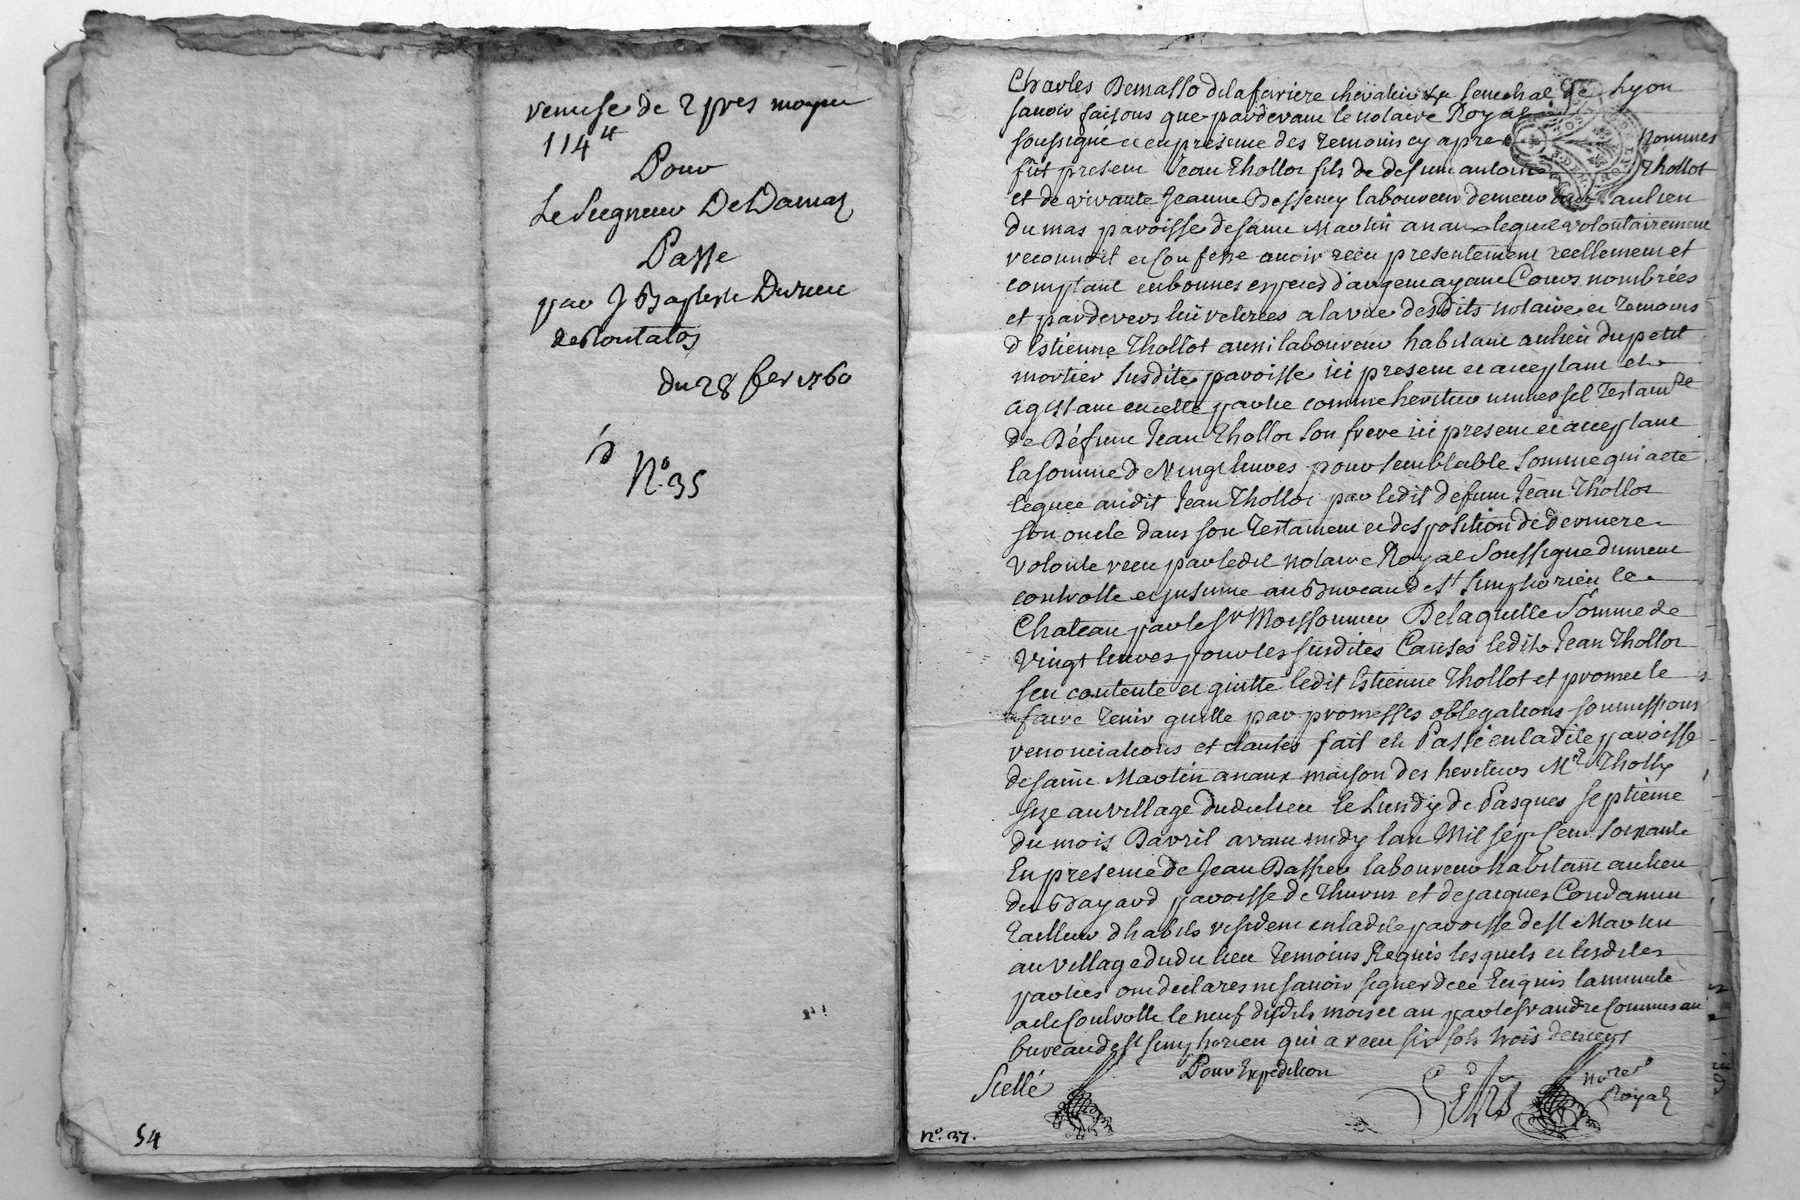 remise de 2 pres moyen
114 tt
Pour
Le Seigneur De Damas
Passé
par J Baptiste Durieu
du 28 fev 1760
No. 35
54
Charles Demasso delaferriere chevalier senechal de Lyon
savoir faisons que pardevant le notaire Royal
soussigné et en presence des temoins cy apres nommés
fût present Jean Thollot fils de defunt antoine Thollot
et de vivante Jeanne Besseney laboureur demeurant au lieu
du mas paroisse de saint Martin anaux lequel volontairement
reconnoit et Confesse avoir reçu presentement reellement et
comptant en bonnes especes d'argent ayant Cours nombrées
et pardevers lui retirées a la vue desdits notaire et temoins
d'Estienne Thollot aussi laboureur habitant au lieu du petit
mortier susdite paroisse ici present et acceptant et
agissant en cette partie comme heritier universel testamre
de Défunt Jean Thollot son frere ici present et acceptant
la somme de Vingt livres pour semblable somme qui a eté
leguée audit Jean Thollot par ledit defunt Jean Thollot
son oncle dans son testament et disposition de derniere
volonté reçu par ledit notaire Royal Soussigné dument
controllé et insinué au Bureau de st Simphorien le
Chateau par le sr Moissonnier De laquelle Somme de
Vingt livres pour les susdites Causes ledit Jean Thollot
s'en contente et quitte ledit Estienne Thollot et promet le
faire tenir quitte par promesses obligations soumissions
renonciations et clauses fait et Passé en ladite paroisse
de saint Martin anaux maison des heritiers Mre Tholly
size au village dudit lieu le Lundy de Pasques septieme
du mois D'avril avant midy l'an Mil sept Cent soixante
En presence de Jean Bassieu laboureur habitant au lieu
du Bayard paroisse de Thurins et de jacques Condamin
tailleur d'habits resident en ladite paroisse de st Martin
au village dudit lieu temoins Requis lesquels et lesdites
parties ont declarés ne savoir signer de ce Enquis la minute
a eté Controllé le neuf desdits mois et an par le sr andre Commis au
bureau de st simphorien qui a reçu six sols trois deniers
Pour Expedition
Scellé
nore
Royal
no. 37.